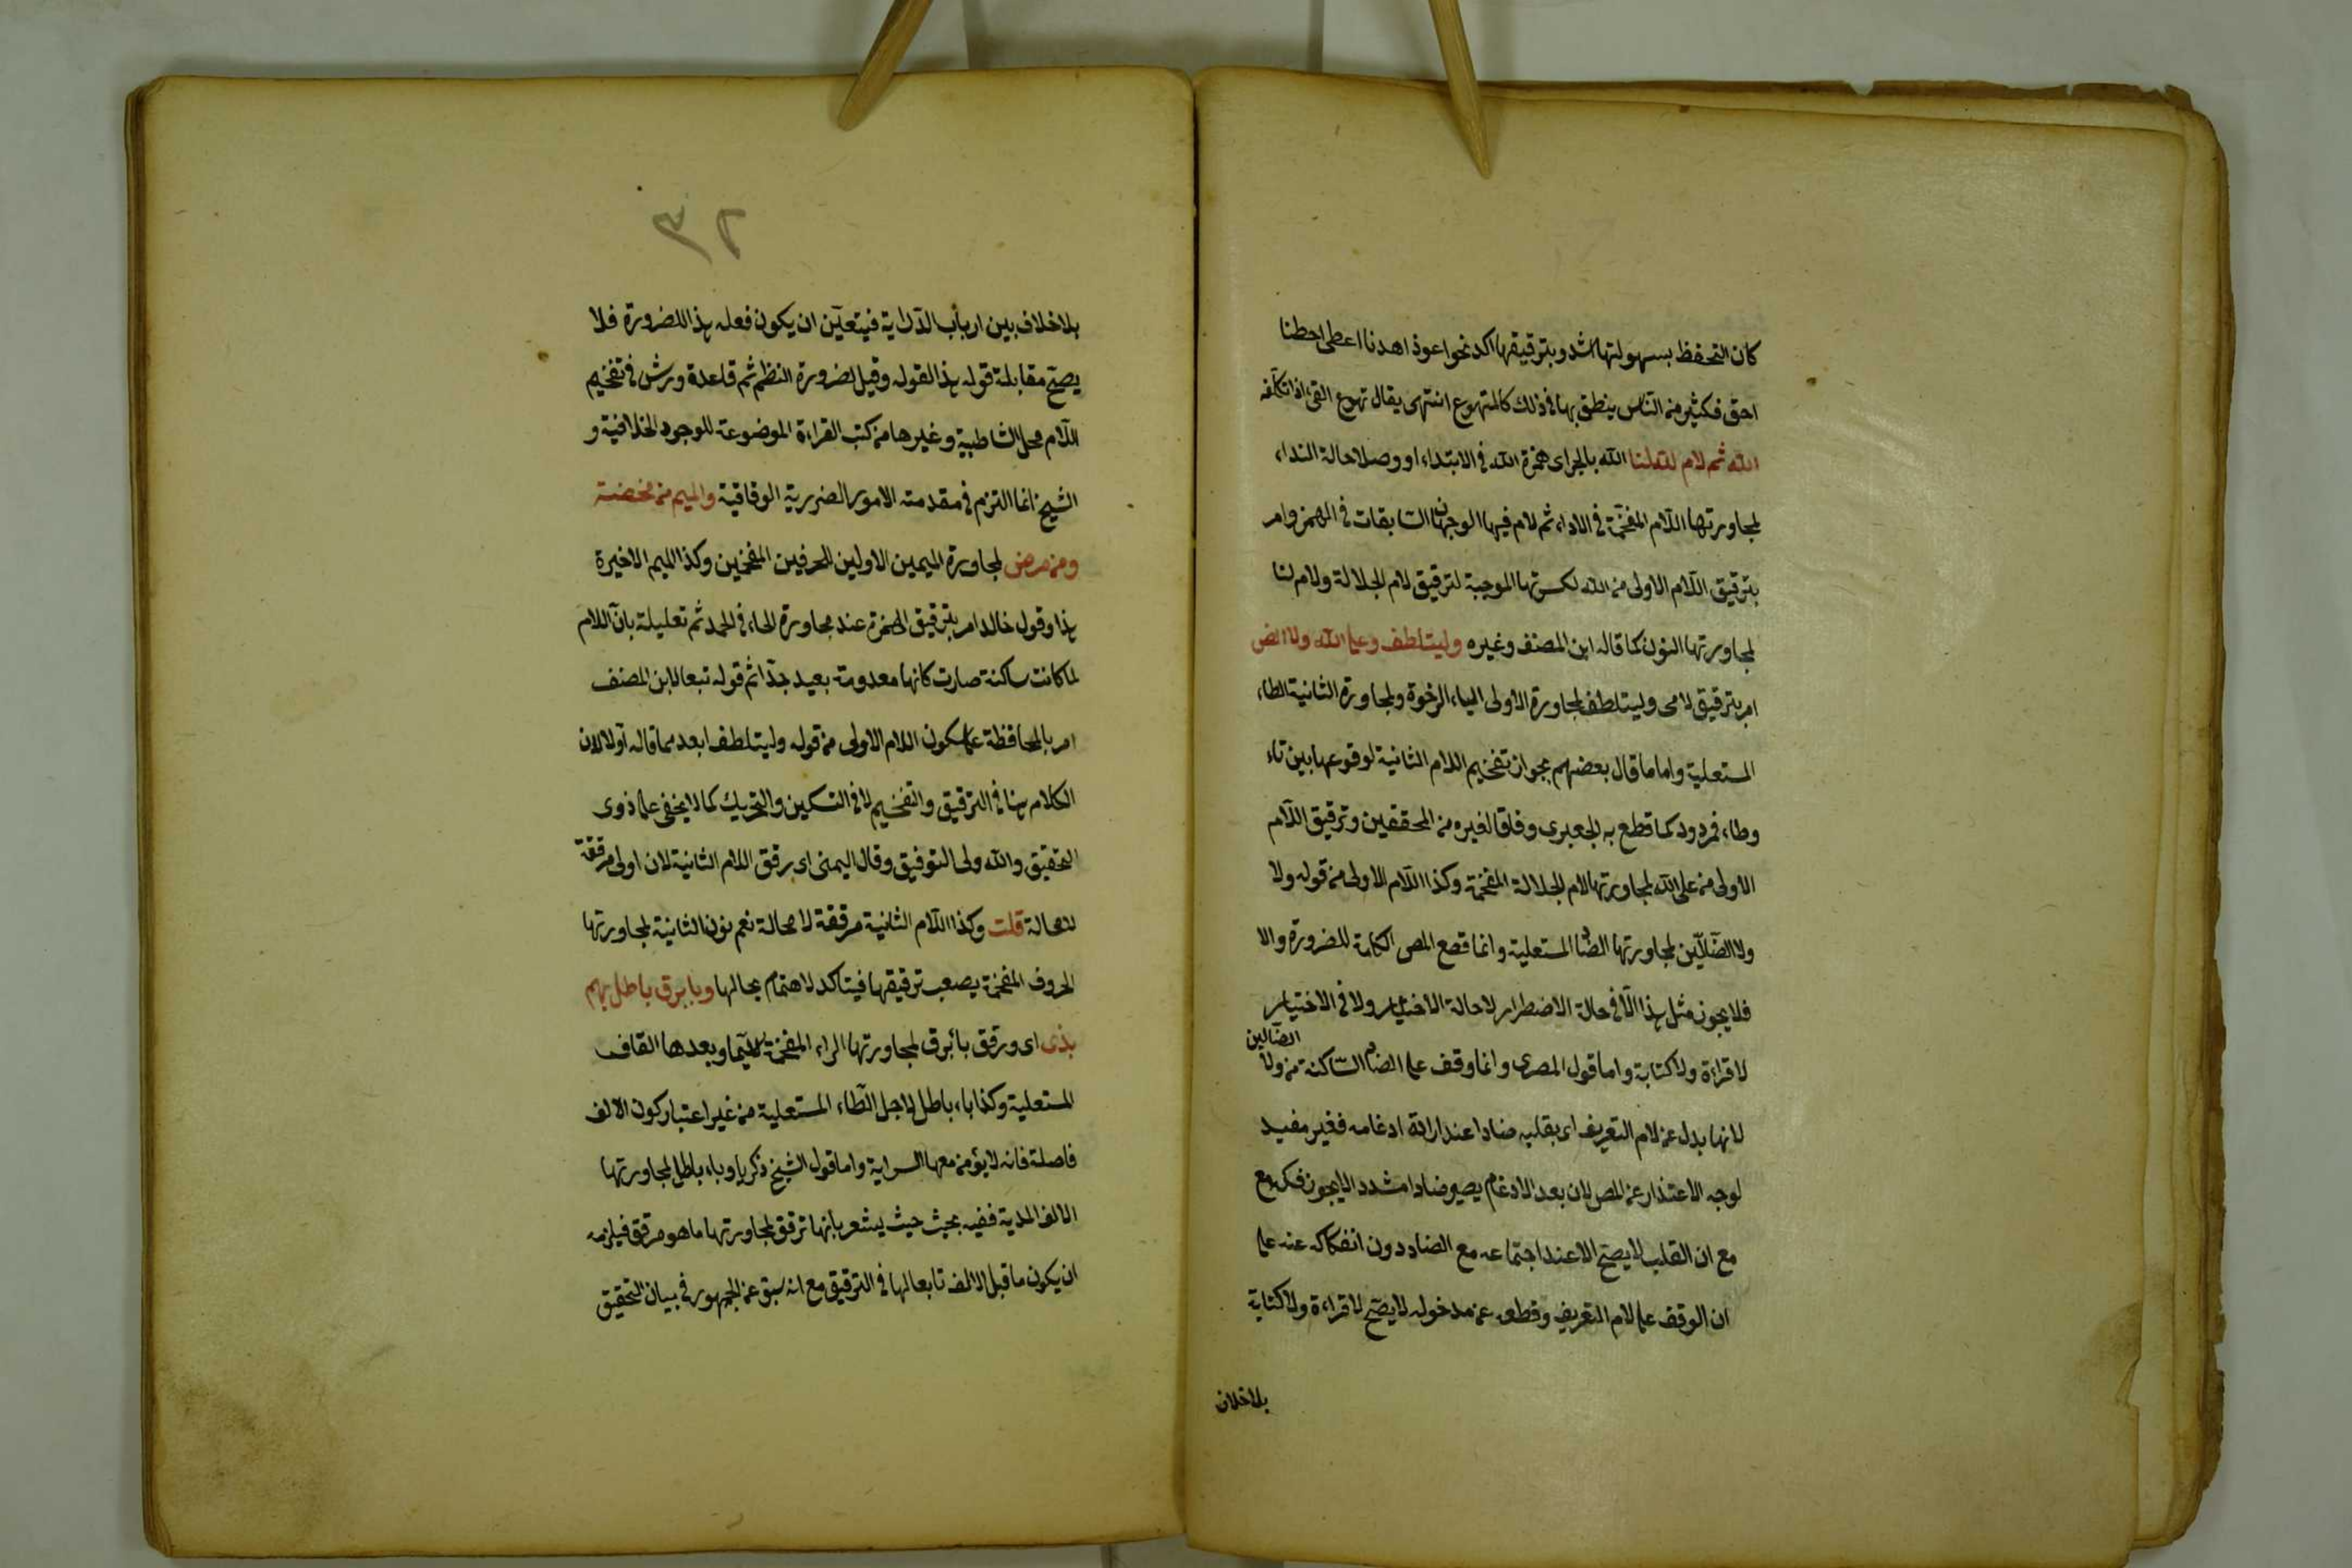 كان التحفظ بسهولتها اشد وبترقيقها اكد نحو اعوذ اهدنا اعطى احطنا
احق فكثير من الناس ينطق بها في ذلك كالمتهوع انتهى يقال تهوع القئ اذا تكلفه
الله ثم لام لله لنا الله بالجر اى همزة الله في الابتداء او وصلا حالة النداء
لمجاورتها اللام المفخمة في الاداء ثم لام فيها الوجهان السابقات في الهمز وامر
بترقيق اللام الاولى من الله لكسرتها الموجبة لترقيق لام الجلالة ولام لنا
لمجاورتها النون كما قاله ابن المصنف وغيره وليتلطف وعلى الله ولا الض
امر بترقيق لامى وليتلطف لمجاورة الاولى الياء الرخوة ولمجاورة الثانية الطاء
المستعلية واما ما قال بعضهم بجواز تفخيم اللام الثانية لوقوعها بين تاء
وطاء فمردود كما قطع به الجعبرى وفاقا لغيره من المحققين وترقيق اللام
الاولى من على الله لمجاورتها لام الجلالة المفخمة وكذا اللام الاولى من قوله ولا
ولا الضآلين لمجاورتها الضاد المستعلية وانما قطع المص الكلمة للضرورة والا
فلا يجوز مثل هذا الا في حالة الاضطرار لا حالة الاختبار ولا في الاختيار
لا قراءة ولا كتابة واما قول المصرى وانما وقف على الضاد الساكنة من ولا الضالين
لانها بدل عن لام التعريف اى بقلبه ضادا عند ارادة ادغامه فغير مفيد
لوجه الاعتذار عن المص لان بعد الادغام يصير ضادا مشددا لا يجوز فكه مع
مع ان القلب لا يصح الا عند اجتماعه مع الضاد دون انفكاكه عنه على
ان الوقف على لام التعريف وقطعه عن مدخوله لا يصح لا قراءة ولا كتابة
بلا خلاف
٣٦
بلا خلاف بين ارباب الدراية فيتعين ان يكون فعله هذا للضرورة فلا
يصح مقابلة قوله هذا القوله وقيل لضرورة النظم ثم قاعدة ورش في تفخيم
اللام محل الشاطبية وغيرها من كتب القراءة الموضوعة للوجوه الخلافية و
الشيخ انما التزم في مقدمته الامور الضررية الوفاقية والميم من مخمصة
ومن مرض لمجاورة الميمين الاولين الحرفين المفخمين وكذا الميم الاخيرة
هذا وقول خالد امر بترقيق الهمزة عند مجاورة الحاء في الحمد ثم تعليله بان اللام
لما كانت ساكنة صارت كانها معدومة بعيد جدا ثم قوله تبعا لابن المصنف
امر بالمحافظة على سكون اللام الاولى من قوله وليتلطف ابعد مما قاله اولا لان
الكلام هنا في الترقيق والتفخيم لا في التسكين والتحريك كما لا يخفى على ذوى
التحقيق والله ولى التوفيق وقال اليمنى اى برقق اللام الثانية لان اولى مرققة
لامحالة قلت وكذا اللام الثانية مرققة لا محالة نعم نون الثانية لمجاورتها
الحروف المفخمة يصعب ترقيقها فيتاكد لاهتمام بحالها وبا برق باطل بهم
بذى اى ورقق با برق لمجاورتها الراء المفخمة لاسيما وبعدها القاف
المستعلية وكذا باء باطل لاجل الطاء المستعلية من غير اعتبار كون الالف
فاصلة فانه لا يؤمن معها السراية واما قول الشيخ زكريا وباء باطل لمجاورتها
الالف المدية ففيه بحيث حيث يشعر بانها ترقق لمجاورتها ما هو مرقق فيلزمه
ان يكون ما قبل الالف تابعا لها في الترقيق مع انه سبق عن الجمهور في بيان التحقيق